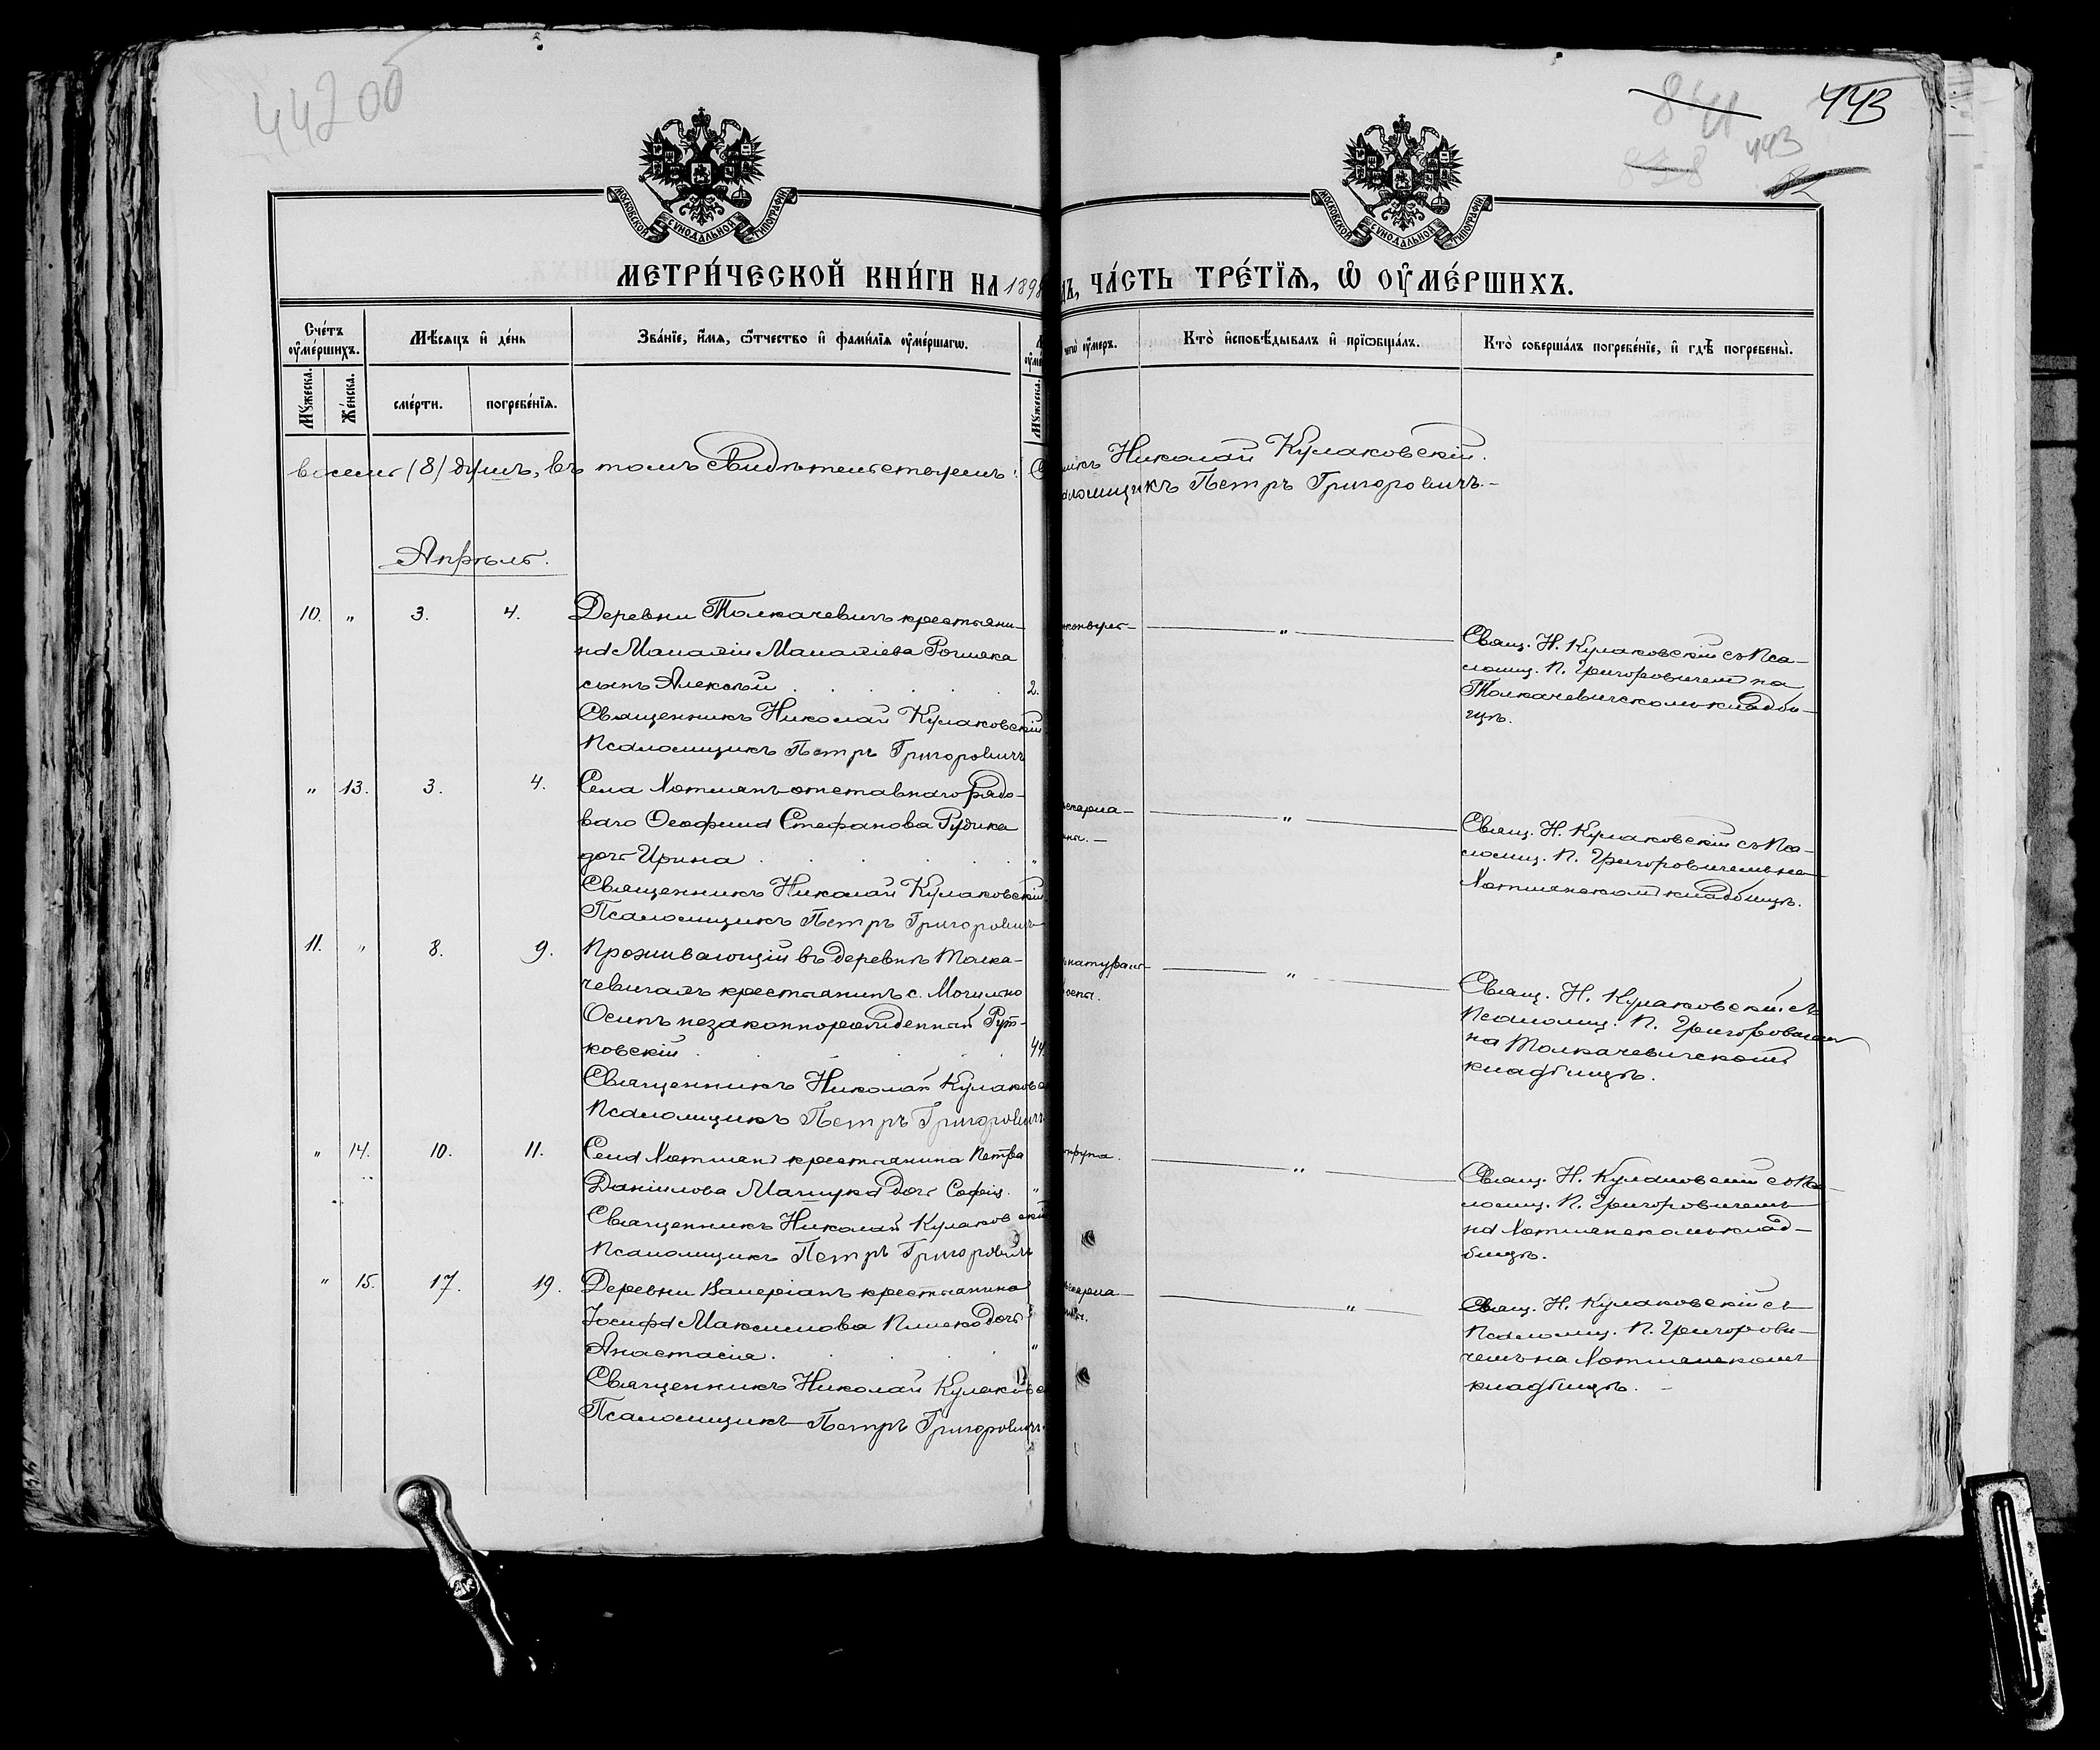 44200
841
443
838
443
МОСКОВСКОЙ СѴНОДАЛЬНОЙ ТИПОГРАФІИ
МОСКОВСКОЙ СѴНОДАЛЬНОЙ ТИПОГРАФІИ
МЕТРИ́ЧЕСКОЙ КНИ́ГИ НА 1898 ДЪ, ЧА́СТЬ ТРЕ́ТЇѦ, Ѡ҆ ОУ҆МЕ́РШИХЪ.
Сче́тъ оу҆ме́ршихъ.
Мѣ́сѧцъ и҆ де́нь
Зва́нїе, и҆́мѧ, ѻ҆́тчество и҆ фами́лїѧ оу҆ме́ршагѡ.
чегѡ̀ оу҆́меръ.
Кто̀ и҆сповѣ́дывалъ и҆ прїѡбща́лъ.
Кто̀ соверша́лъ погребе́нїе, и҆ гдѣ̀ погребены̀.
Мꙋ́жеска.
Же́нска.
сме́рти.
погребе́нїѧ.
Мꙋ́жеска.
восемь (8) душъ, въ томъ свидѣтельствуемъ: Николай Кулаковскій.
аломщикъ Петръ Григоровичъ.-
Апрѣль.
10. " 3. 4. Деревни Толкачевичъ крестьяни-
на Мамалій Маналіева
сынъ Алексѣй . . . . . 2.
Священникъ Николай Кулаковскій
Псаломщикъ Петръ Григоровичъ
"
Свящ. Н. Кулаковскій съ Пса-
ломщ. П. Григоровичемъ на
Толкачевичскомъ кладби-
щѣ.
" 13. 3. 4. Села Хотлянъ отставнаго рядо-
ваго Ѳеофила Стефанова Рудика
дочь Ирина . . . . . "
Священникъ Николай Кулаковскій
Псаломщикъ Петръ Григоровичъ
"
Свящ. Н. Кулаковскій съ Пса-
ломщ. П. Григоровичемъ на
Хотлянскомъ кладбищѣ.
11. " 8. 9. Проживающій въ деревнѣ Толка-
чевичахъ крестьянинъ с. Могильно
Осипъ незаконнорожденный Рут-
ковскій . . . . . 44.
Священникъ Николай Кулаковск
Псаломщикъ Петръ Григоровичъ
натураль-
оспы.
"
Свящ. Н. Кулаковскій съ
Псаломщ. П. Григоровичем
на Толкачевичскомъ
кладбищѣ.
" 14. 10. 11. Села Хотлянъ крестьянина Петра
Даніилова Мацука дочь Софія. "
Священникъ Николай Кулаковскій
Псаломщикъ Петръ Григоровичъ
крупа.
"
Свящ. Н. Кулаковскій съ Пса-
ломщ. П. Григоровичемъ
на Хотлянскомъ клад-
бищѣ.
" 15. 17. 19. Деревни Валеріанъ крестьянина
Іосифа Максимова дочь
Анастасія. . . . . "
Священникъ Николай Кулаковск
Псаломщикъ Петръ Григоровичъ.
"
Свящ. Н. Кулаковскій съ
Псаломщ. П. Григорови-
чемъ на Хотлянскомъ
кладбищѣ. -